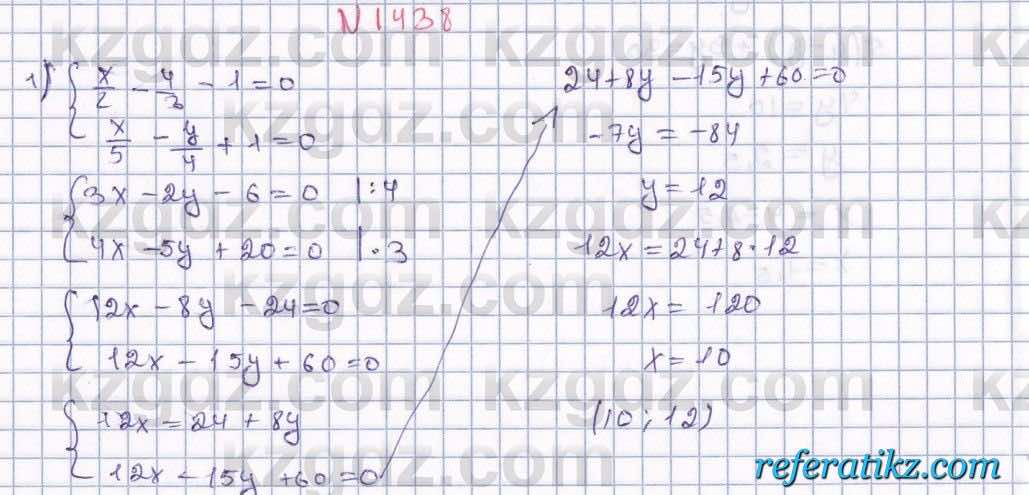 N 1438
1) { x/2 - y/3 - 1 = 0
x/5 - y/4 + 1 = 0
{ 3x - 2y - 6 = 0 | : 4
4x - 5y + 20 = 0 | · 3
{ 12x - 8y - 24 = 0
12x - 15y + 60 = 0
{ 12x = 24 + 8y
12x - 15y + 60 = 0
24 + 8y - 15y + 60 = 0
-7y = -84
y = 12
12x = 24 + 8 · 12
12x = 120
x = 10
(10 ; 12)
kzgdz.com
referatikz.com